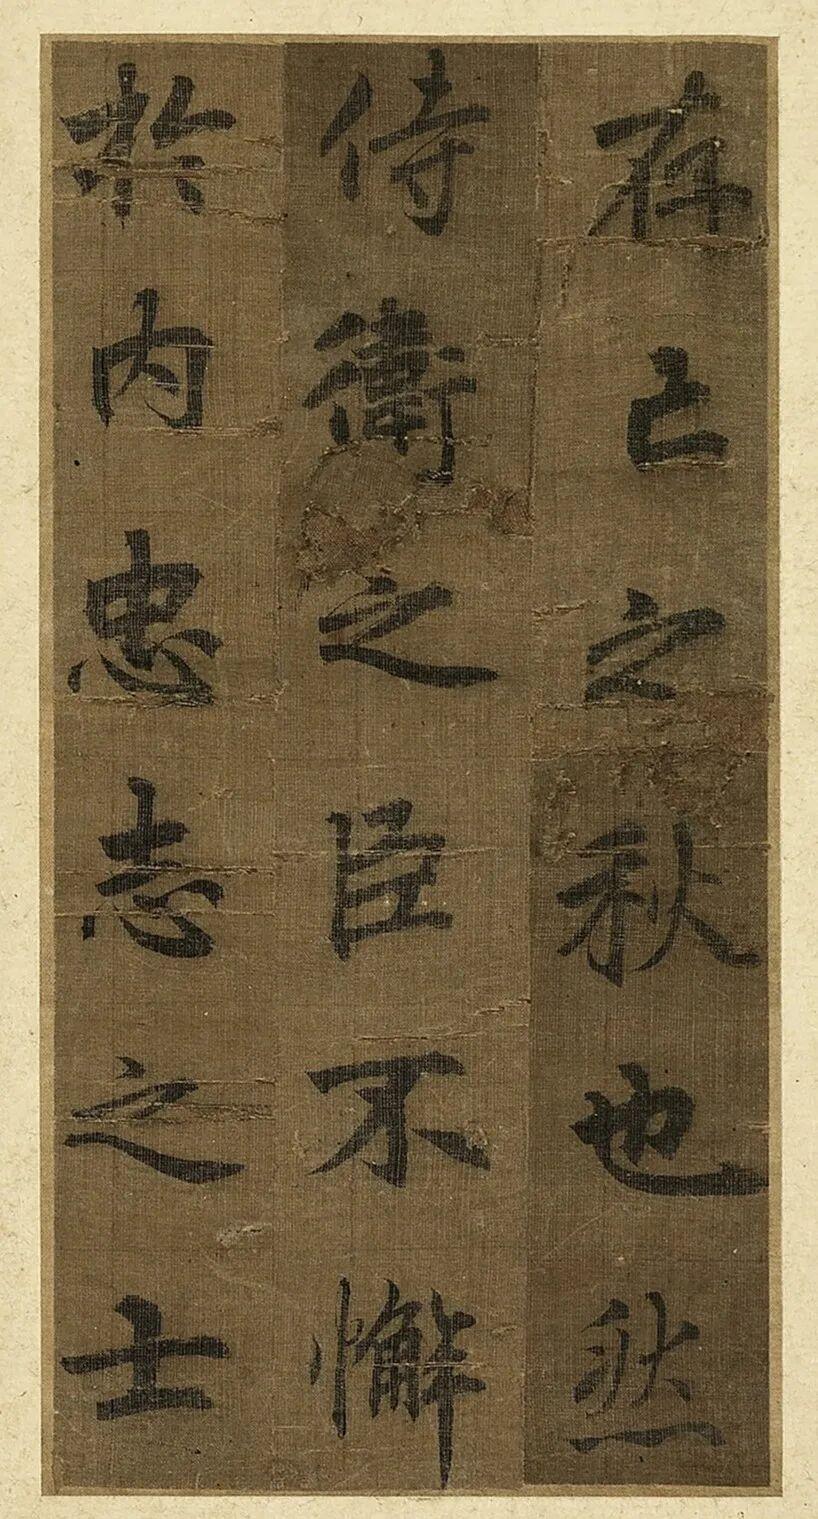 存亡之秋也然
侍衛之臣不懈
於内忠志之士